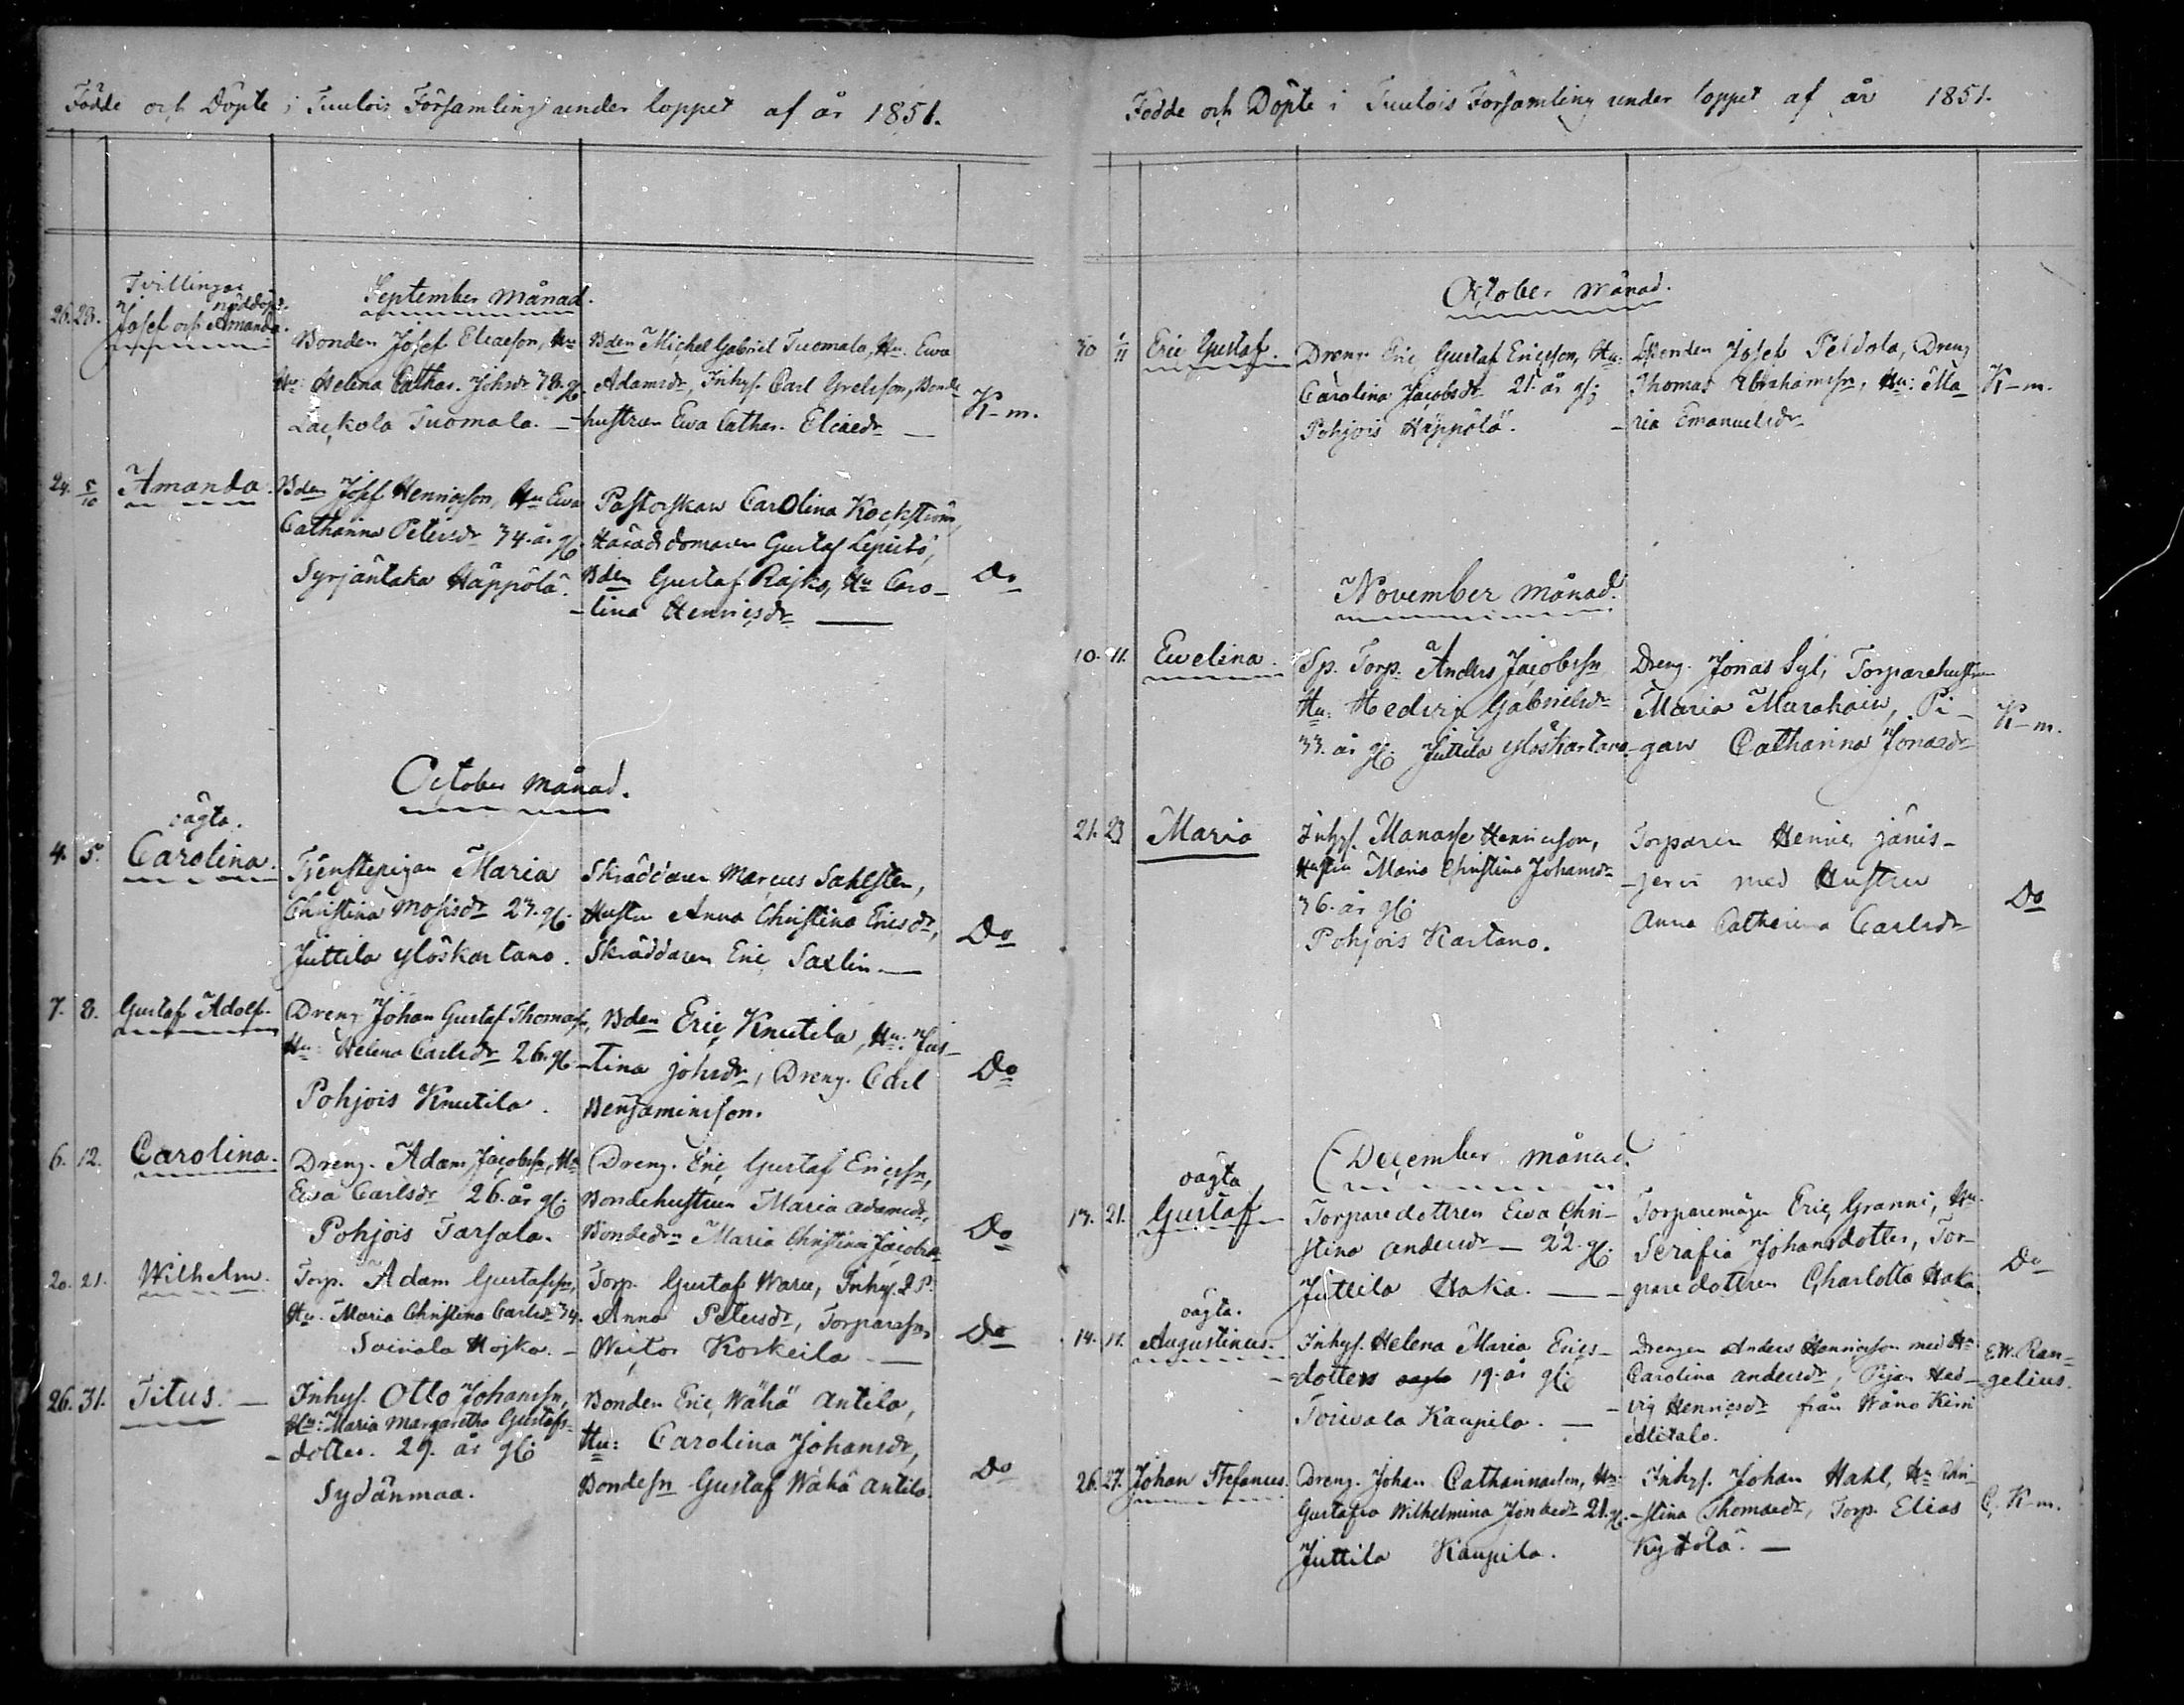 Födde och Döpte i Tuulois Församling under loppet af år 1851.
Tvillingar
nöddöpt.
September månad.
26. 28. Josef och Amanda.
Bonden Josef Eliaeson, Hu
Hu: Helena Cathar. Johsdr 38. gl.
Lackola Tuomala. —
Bden Michel Gabriel Tuomala, Hu. Ewa
Adamsdr, Inhys. Carl Grelsson, Bonde
hustrun Ewa Cathar. Eliaedr —
K-m.
24. 5/10 Amanda.
Bden Josef Henricsson, Hu Ewa
Catharina Petersdr 34. år gl.
Syrjäntaka Häppölä.
Pastorskan Carolina Kockström,
Häradsdomaren Gustaf Lepistö,
Bden Gustaf Rajko, Hu Caro-
-lina Henricsdr —
Do
October månad.
oägta.
4. 5. Carolina.
Tjenstepigan Maria
Christina Mosisdr 23. gl.
Juttila Ylöskartano.
Skräddaren Marcus Sahlsten,
Hustru Anna Christina Ericsdr,
Skräddaren Eric Saxlin —
Do
7. 8. Gustaf Adolf.
Dreng Johan Gustaf Thomass,
Hu: Helena Carlsdr 26. gl.
Pohjois Knutila.
Bden Eric Knutila, Hu: Jus-
-tina Johsdr, Dreng. Carl
Benjaminsson.
Do
6. 12. Carolina.
Dreng. Adam Jacobssn, Hu
Ewa Carlsdr 26. år gl.
Pohjois Tarsala.
Dreng. Eric Gustaf Ericssn,
Bondehustrun Maria Adamsdr,
Bondedrn Maria Christina Jacobsdr
Do
20. 21. Wilhelm.
Torp. Adam Gustafssn,
Hu. Maria Christina Carlsdr 34.
Sairiala Hojka. —
Torp. Gustaf Ware, Inhys. E P.
Anna Petersdr, Torparesn,
Wictor Korkeila —
Do
26. 31. Titus. —
Inhys. Otto Johanssn,
Hu: Maria Margaretha Gustafs-
-dotter. 29. år gl.
Sydänmaa.
Bonden Eric Wähä Antila,
Hu: Carolina Johansdr,
Bondesn Gustaf Wähä Antila.
Do
Födde och Döpte i Tuulois Församling under loppet af år 1851.
October månad.
30 1/11 Eric Gustaf.
Dreng Eric Gustaf Ericsson, Hu:
Carolina Jacobsdr 21. år gl.
Pohjois Häppölä.
Bonden Josef Peldola, Dreng
Thomas Abrahamssn, Hu: Ma
-ria Emanuelsdr
K-m.
November månad.
10. 11. Ewelina.
Sp. Torp. Anders Jacobssn
Hu: Hedvig Gabrielsdr
33. år gl. Juttila Ylöskartano
Dreng. Jonas Syl, Torparehustrun
Maria Murahain, Pi-
-gan Catharina Jonaedr
K-m.
21. 23 Maria
Inhys. Manasse Henricsson,
Hustru Maria Christina Johansdr
36. år gl.
Pohjois Kartano.
Torparen Henric Jänis-
-jervi med Hustru
Anna Catharina Carlsdr
Do
December månad.
oägta
13. 21. Gustaf
Torparedottren Ewa Chri-
stina Andersdr — 22. gl.
Juttila Haka. —
Torparemågen Eric Granni, Hu
Serafia Johansdotter, Tor-
-paredottren Charlotta Haka.
Do
oägta.
14. 17. Augustinus.
Inhys. Helena Maria Erics-
-dotters oagta 19. år gl.
Toivala Kaupila. —
Drengen Anders Henricsson med Hu
Carolina Andersdr, Pigan Hed-
-vig Henricsdr från Wåno Kirri
Alitalo.
E W. Ran-
gelius.
26. 27. Johan Stefanus.
Dreng. Johan Catharinaeson, Hu:
Gustafva Wilhelmina Jonaedr 21. gl.
Juttila Kaupila.
Inhys. Johan Hahl, Hu Chri-
-stina Thomaedr, Torp. Elias
Kytölä. —
C. K-m.